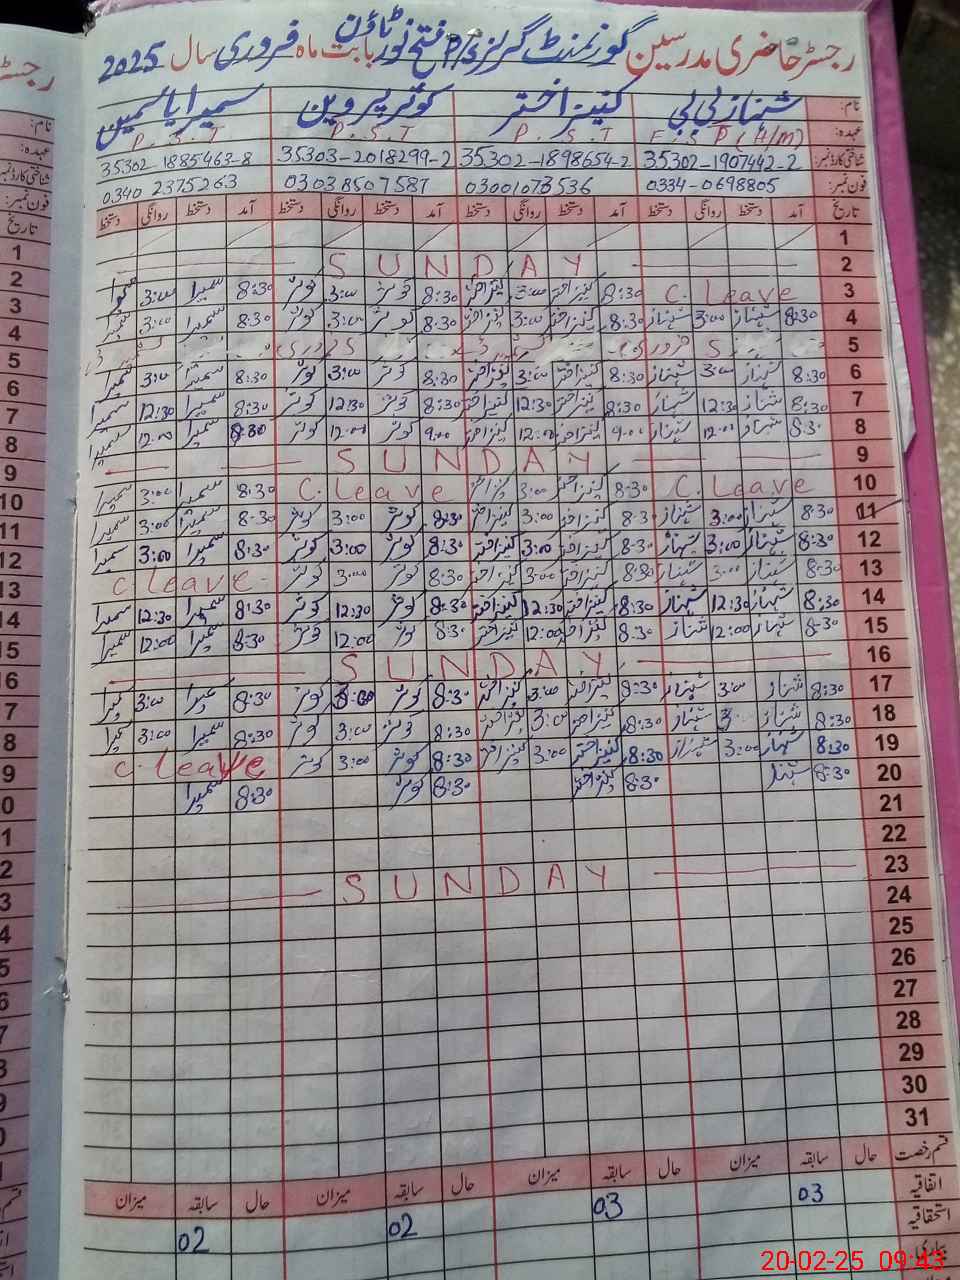 رجسٹر حاضری مدرسین گورنمنٹ گرلز P/S فتح نور ٹاؤن بابت ماہ فروری سال 2025
نام: شہناز بی بی کنیز اختر کوثر پروین سمیرا یاسمین
عہدہ: P.S.T P.S.T P.S.T (H/M)
شناختی کارڈ نمبر: 35302-1907442-2 35302-1898654-2 35303-2018299-2 35302-1885463-8
فون نمبر: 0334-0698805 03001073536 03038507587 0340 2375263
تاریخ آمد دستخط روانگی دستخط آمد دستخط روانگی دستخط آمد دستخط روانگی دستخط آمد دستخط روانگی دستخط
1
2 SUNDAY
3 C. Leave 8:30 کنیز اختر 3:00 کنیز اختر 8:30 کوثر 3:00 کوثر 8:30 سمیرا 3:00
4 8:30 شہناز 3:00 شہناز 8:30 کنیز اختر 3:00 کنیز اختر 8:30 کوثر 3:00 کوثر 8:30 سمیرا 3:00 سمیرا
5 فروری
6 8:30 شہناز 3:00 شہناز 8:30 کنیز اختر 3:00 کنیز اختر 8:30 کوثر 3:00 کوثر 8:30 سمیرا 3:00 سمیرا
7 8:30 شہناز 12:30 شہناز 8:30 کنیز اختر 12:30 کنیز اختر 8:30 کوثر 12:30 کوثر 8:30 سمیرا 12:30 سمیرا
8 8:30 شہناز 12:00 شہناز 9:00 کنیز اختر 12:00 کنیز اختر 9:00 کوثر 12:00 کوثر 8:30 سمیرا 12:00 سمیرا
9 SUNDAY
10 C. Leave 8:30 کنیز اختر 3:00 کنیز اختر C. Leave 8:30 سمیرا 3:00 سمیرا
11 8:30 شہناز 3:00 شہناز 8:30 کنیز اختر 3:00 کنیز اختر 8:30 کوثر 3:00 کوثر 8:30 سمیرا 3:00 سمیرا
12 8:30 شہناز 3:00 شہناز 8:30 کنیز اختر 3:00 کنیز اختر 8:30 کوثر 3:00 کوثر 8:30 سمیرا 3:00 سمیرا
13 8:30 شہناز 3:00 شہناز 8:30 کنیز اختر 3:00 کنیز اختر 8:30 کوثر 3:00 کوثر C. Leave
14 8:30 شہناز 12:30 شہناز 8:30 کنیز اختر 12:30 کنیز اختر 8:30 کوثر 12:30 کوثر 8:30 سمیرا 12:30 سمیرا
15 8:30 شہناز 12:00 شہناز 8:30 کنیز اختر 12:00 کنیز اختر 8:30 کوثر 12:00 کوثر 8:30 سمیرا 12:00 سمیرا
16 SUNDAY
17 8:30 شہناز 3:00 شہناز 8:30 کنیز اختر 3:00 کنیز اختر 8:30 کوثر 3:00 کوثر 8:30 سمیرا 3:00 سمیرا
18 8:30 شہناز شہناز 8:30 کنیز اختر 3:00 کنیز اختر 8:30 کوثر 3:00 کوثر 8:30 سمیرا 3:00 سمیرا
19 8:30 شہناز 3:00 شہناز 8:30 کنیز اختر 3:00 کنیز اختر 8:30 کوثر 3:00 کوثر C. Leave
20 8:30 شہناز 8:30 کنیز اختر 8:30 کوثر 8:30 سمیرا
21
22
23 SUNDAY
24
25
26
27
28
29
30
31
قسم رخصت حال سابقہ میزان حال سابقہ میزان حال سابقہ میزان حال سابقہ میزان
اتفاقیہ 03 03 02 02
استحقاقیہ
بیماری
20-02-25 09:43